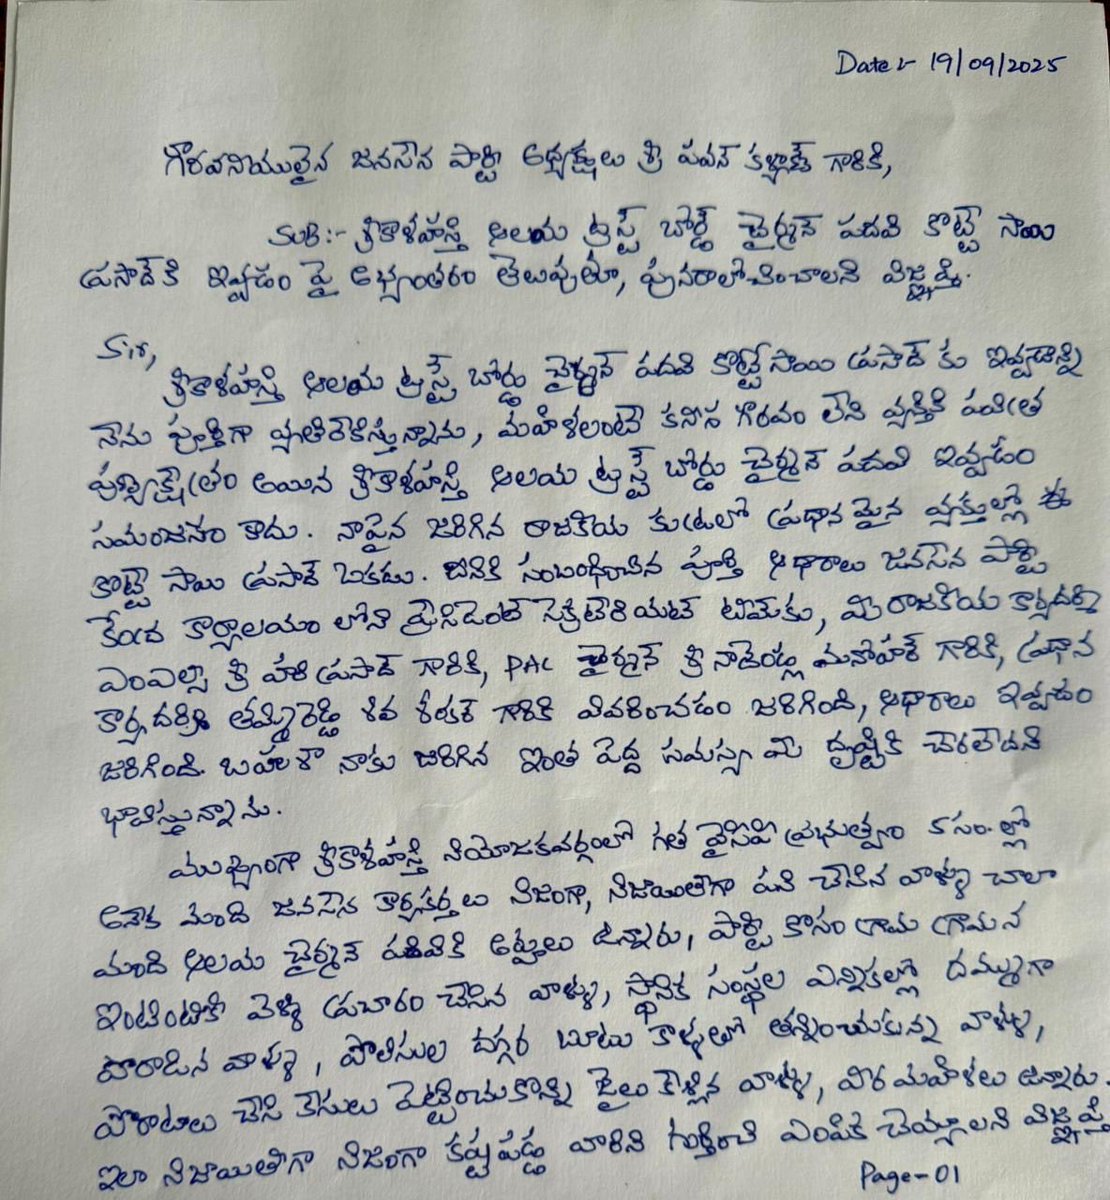 Date :- 19/09/2025
గౌరవనియులైన జనసేన పార్టీ అధ్యక్షులు శ్రీ పవన్ కళ్యాణ్ గారికి,
SUB:- శ్రీకాళహస్తి ఆలయ ట్రస్ట్ బోర్డ్ చైర్మన్ పదవి కొట్టే సాయి
ప్రసాద్ కి ఇవ్వడం పై అభ్యంతరం తెలుపుతూ, పునరాలోచించాలని విజ్ఞప్తి.
Sir,
శ్రీకాళహస్తి ఆలయ ట్రస్ట్ బోర్డు చైర్మన్ పదవి కొట్టే సాయి ప్రసాద్ కు ఇవ్వడాన్ని
నేను పూర్తిగా వ్యతిరేకిస్తున్నాను, మహిళలంటే కనీస గౌరవం లేని వ్యక్తికి పవిత్ర
పుణ్యక్షేత్రం అయిన శ్రీకాళహస్తి ఆలయ ట్రస్ట్ బోర్డు చైర్మన్ పదవి ఇవ్వడం
సమంజసం కాదు. నాపైన జరిగిన రాజకీయ కుట్రలో ప్రధానమైన వ్యక్తుల్లో ఈ
కొట్టే సాయి ప్రసాద్ ఒకడు. దీనికి సంబంధించిన పూర్తి ఆధారాలు జనసేన పార్టీ
కేంద్ర కార్యాలయం లోని ప్రెసిడెంట్ సెక్రటేరియట్ టీమ్‌కు, మీ రాజకీయ కార్యదర్శి
ఎంఎల్సీ శ్రీ హరి ప్రసాద్ గారికి, PAC చైర్మన్ శ్రీ నాదెండ్ల మనోహర్ గారికి, ప్రధాన
కార్యదర్శి తమ్మిరెడ్డి శివ శంకర్ గారికి వివరించడం జరిగింది, ఆధారాలు ఇవ్వడం
జరిగింది. బహుశా నాకు జరిగిన ఇంత పెద్ద సమస్య మీ దృష్టికి చేరలేదని
భావిస్తున్నాను.
ముఖ్యంగా శ్రీకాళహస్తి నియోజకవర్గంలో గత వైసిపి ప్రభుత్వం 5సం.ల్లో
అనేక మంది జనసేన కార్యకర్తలు నిజంగా, నిజాయితీగా పని చేసిన వాళ్ళు చాలా
మంది ఆలయ చైర్మన్ పదవికి అర్హులు ఉన్నారు, పార్టీ కోసం గ్రామ గ్రామన
ఇంటింటికి వెళ్ళి ప్రచారం చేసిన వాళ్ళు, స్థానిక సంస్థల ఎన్నికల్లో దమ్ముగా
పోరాడిన వాళ్ళు, పోలీసుల దగ్గర బూటు కాళ్ళతో తన్నించుకున్న వాళ్ళు,
పోరాటాలు చేసి కేసులు పెట్టించుకొన్ని జైలు కెళ్లిన వాళ్ళు, వీర మహిళలు ఉన్నారు.
ఇలా నిజాయితీగా నిజంగా కష్టపడ్డ వారిని గుర్తించి ఎంపిక చెయ్యాలని విజ్ఞప్తి
Page-01